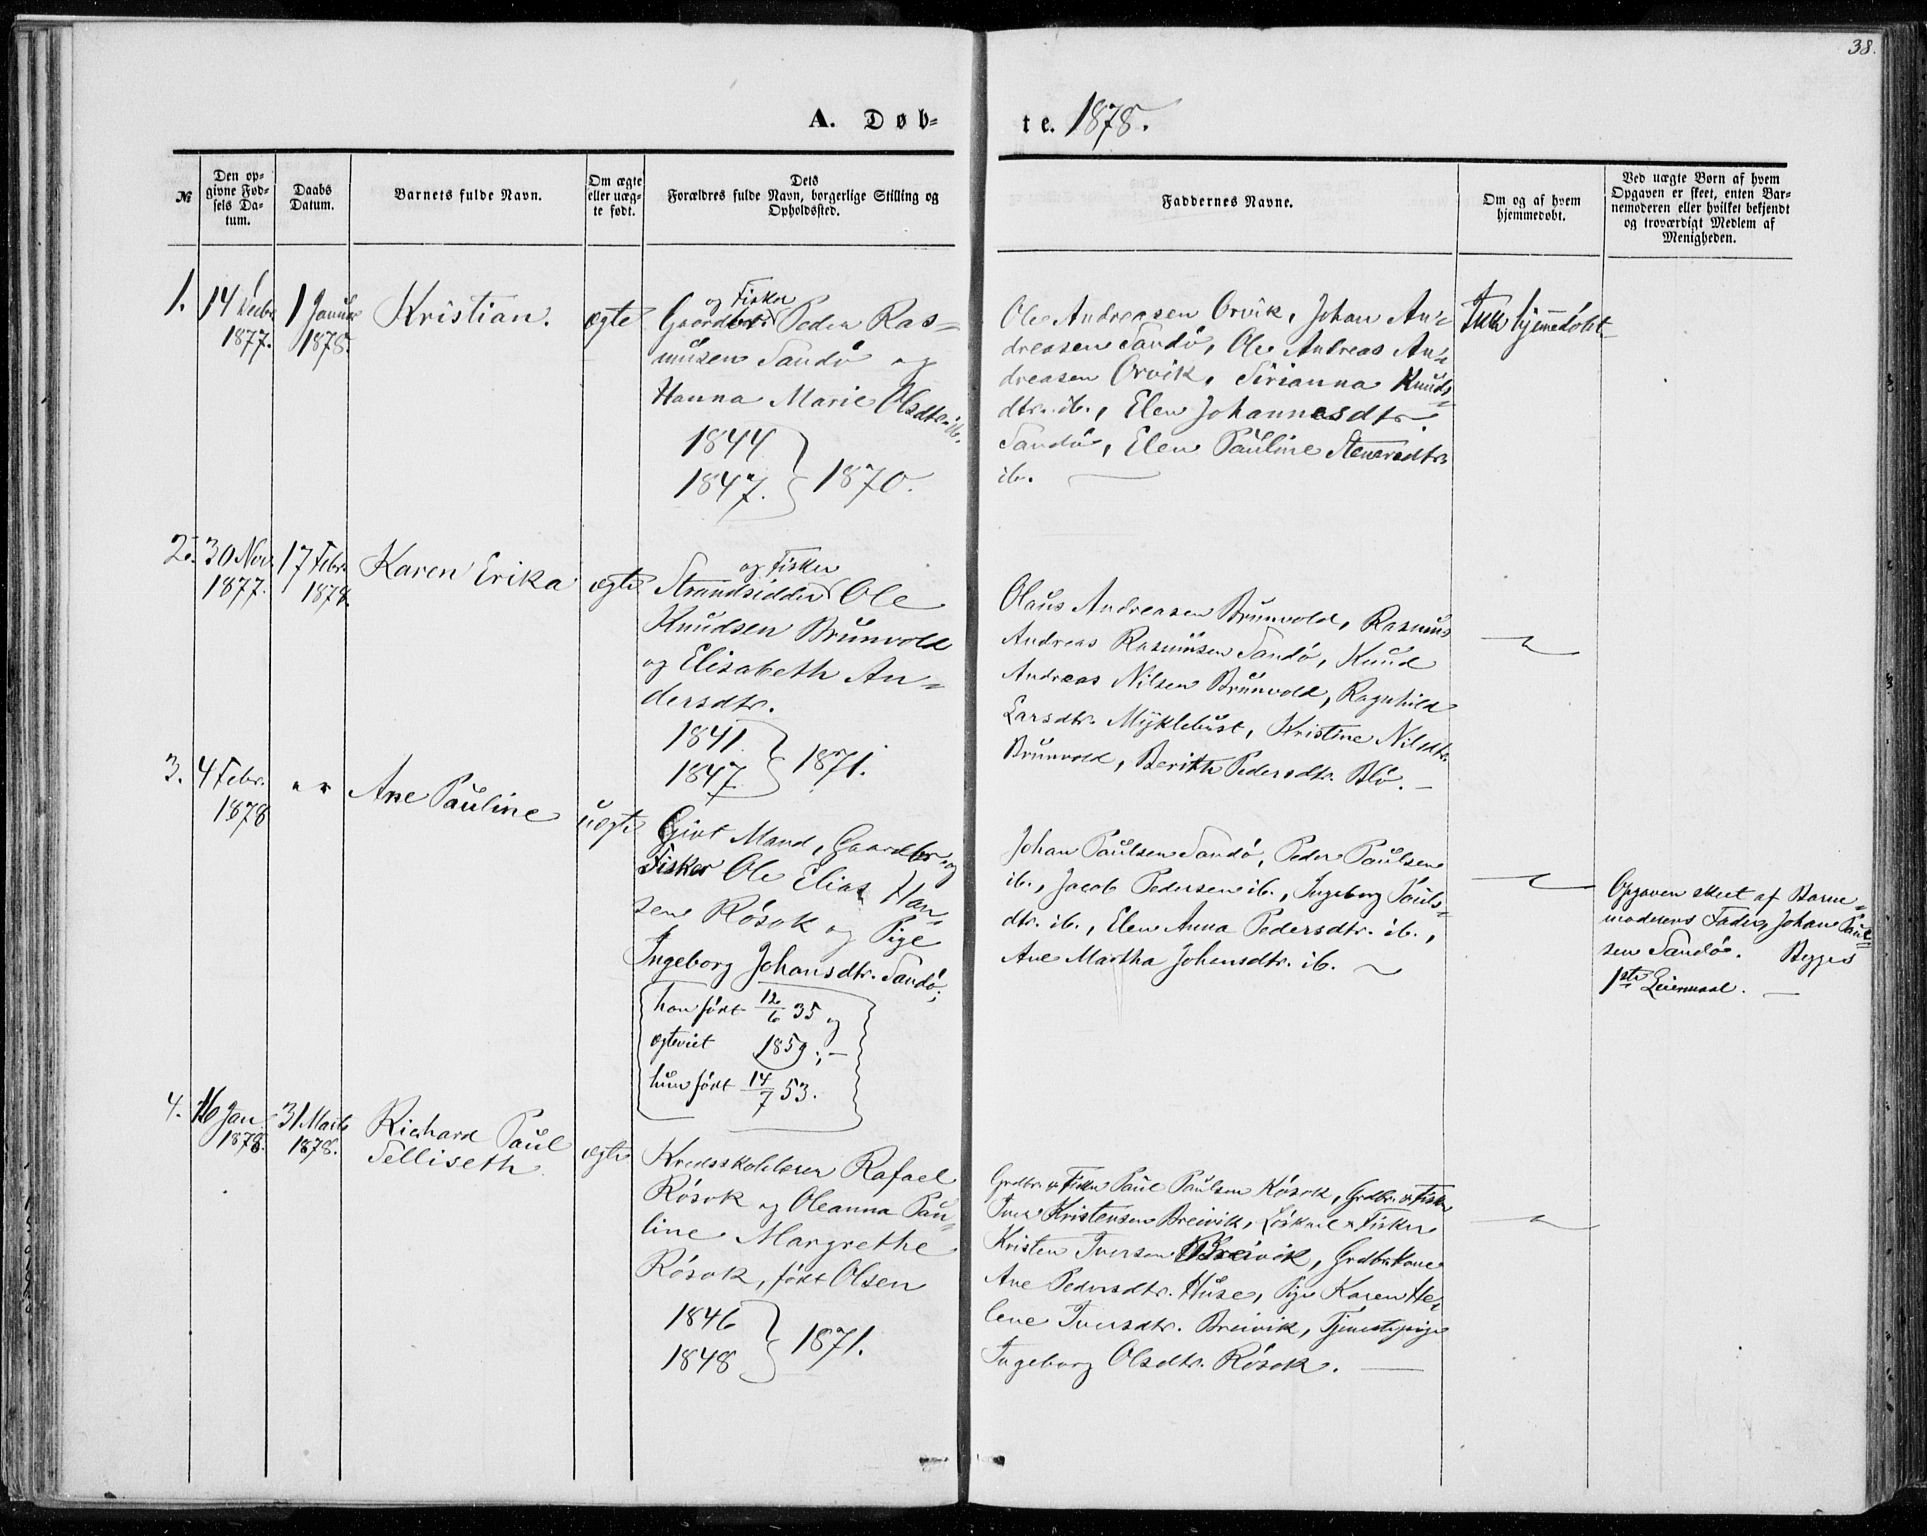 38.
A. Døb-
te. 1878.
№
Den op-
givne Fød-
sels Da-
tum.
Daabs
Datum.
Barnets fulde Navn.
Om ægte
eller uæg-
te født.
Dets
Forældres fulde Navn, borgerlige Stilling og
Opholdssted.
Faddernes Navne.
Om og af hvem
hjemmedøbt.
Ved uægte Børn af hvem
Opgaven er skeet, enten Bar-
nemoderen eller hvilket bekjendt
og troværdigt Medlem af
Menigheden.
1.
14 Decbr
1877.
1 Januar
1878.
Kristian.
ægte
og Fisker
Gaardbr. Peder Ras-
musen Sandø og
Hanna Marie Olsdtr. ib.
1844
1847. } 1870.
Ole Andreasen Orvik, Johan An-
dreasen Sandø, Ole Andreas An-
dreasen Orvik, Sirianna Knuds-
dtr. ib., Elen Johannesdtr.
Sandø, Elen Pauline
ib.
Ikke hjemmedøbt
2.
30 Nov.
1877.
17 Febr.
1878.
Karen Erika
ægte
og Fisker
Strandsidder Ole
Knudsen Brunvold
og Elisabeth An-
dersdtr.
1841.
1847. } 1871.
Olaus Andreasen Brunvold, Rasmus
Andreas Rasmusen Sandø, Knud
Andreas Nilsen Brunvold, Ragnhild
Larsdtr. Myklebust, Kristine Nilsdtr.
Brunvold, Berith Pedersdtr. Blø.
3.
4 Febr.
1878
" "
Ane Pauline
uægte
Givt Mand, Gaardbr. og
Fisker Ole Elias Han-
sen Røsok og Pige
Ingeborg Johansdtr. Sandø;
han født 12/6 35 og
ægteviet 1859;
hun født 14/7 53.
Johan Paulsen Sandø, Peder Paulsen
ib., Jacob Pedersen ib., Ingeborg Pauls-
dtr. ib., Elen Anna Pedersdtr. ib.,
Ane Martha Johansdtr. ib.
Opgaven skeet af Barne-
moderens Fader, Johan Paul-
sen Sandø. Begges
1ste Leiermaal.
4.
16 Jan.
1878.
31 Marts
1878.
Richard Paul
Selliseth
ægte
Kredsskolelærer Rafael
Røsok og Oleanna Pau-
line Margrethe
Røsok, født Olsen
1846
1848 } 1871.
Grdbr. & Fisker Paul Paulsen Røsok, Grdbr. & Fisker
Iver Kristensen Breivik, Løskarl & Fisker
Kristen Iversen Breivik, Grdbrkone
Ane Pedersdtr. Huse, Pige Karen He-
lene Iversdtr. Breivik, Tjenestepige
Ingeborg Olsdtr. Røsok.